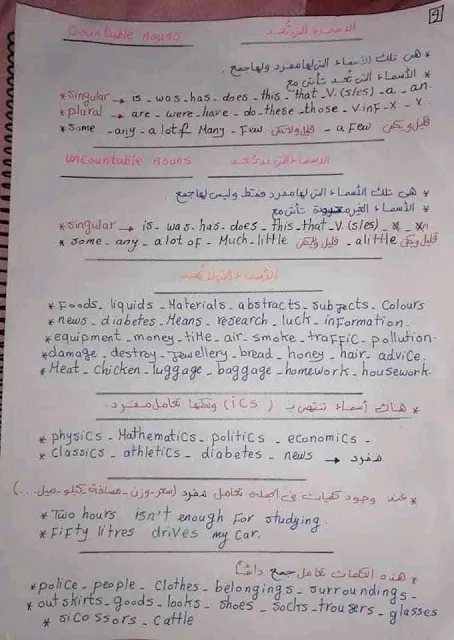 [9]
Countable nouns الاسماء التى تُعد
* هى تلك الأسماء التى لها مفرد ولها جمع.
* الأسماء التى تُعد تأتى مع
* singular → is - was - has - does - this - that - V.(s/es) - a - an.
* plural → are - were - have - do - these - those - V.inf - X - X
* some - any - a lot of Many - Few قليل ولايكفى - a Few قليل ويكفى
Uncountable nouns الاسماء التى لا تُعد
* هى تلك الأسماء التى لها مفرد فقط وليس لها جمع.
* الأسماء الغير معدودة تأتى مع
* singular → is - was - has - does - this - that - V.(s/es) - X - X
* some - any - a lot of - Much - little قليل ولايكفى - a little قليل ويكفى
الأسماء التى لا تُعد
* Foods - liquids - Materials - abstracts - subjects - Colours
* news - diabetes - Means - research - luck - information.
* equipment - money - time - air - smoke - traffic - pollution.
* damage - destroy - Jewellery - bread - honey - hair - advice.
* Meat - chicken - luggage - baggage - homework - housework.
* هناك أسماء تنتهى بـ (ics) ولكنها تعامل مفرد.
* physics - Mathematics - politics - economics -
* classics - athletics - diabetes - news → مفرد
* عند وجود كميات فى الجملة تعامل مفرد (سعر - وزن - مسافة - كيلو - ميل ...)
* Two hours isn't enough for studying.
* Fifty litres drives my car.
* هذه الكلمات تعامل جمع دائماً
* police - people - Clothes - belongings - surroundings -
* outskirts - goods - looks - shoes - socks - trousers - glasses
* sicossors - cattle